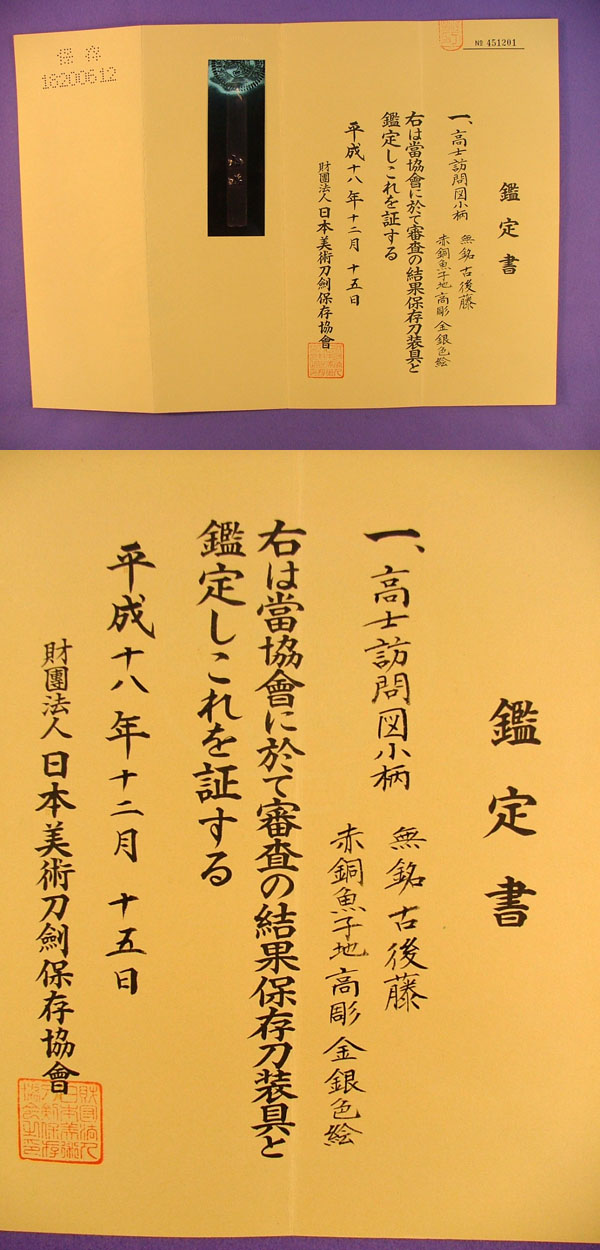 保存
18200612
№ 451201
鑑定書
一、高士訪問図小柄
無銘 古後藤
赤銅魚子地高彫 金銀色絵
右は當協會に於て審査の結果保存刀装具と
鑑定しこれを証する
平成十八年十二月十五日
財團法人 日本美術刀劍保存協會
鑑定書
一、高士訪問図小柄
無銘 古後藤
赤銅魚子地高彫 金銀色絵
右は當協會に於て審査の結果保存刀装具と
鑑定しこれを証する
平成十八年十二月十五日
財團法人 日本美術刀劍保存協會